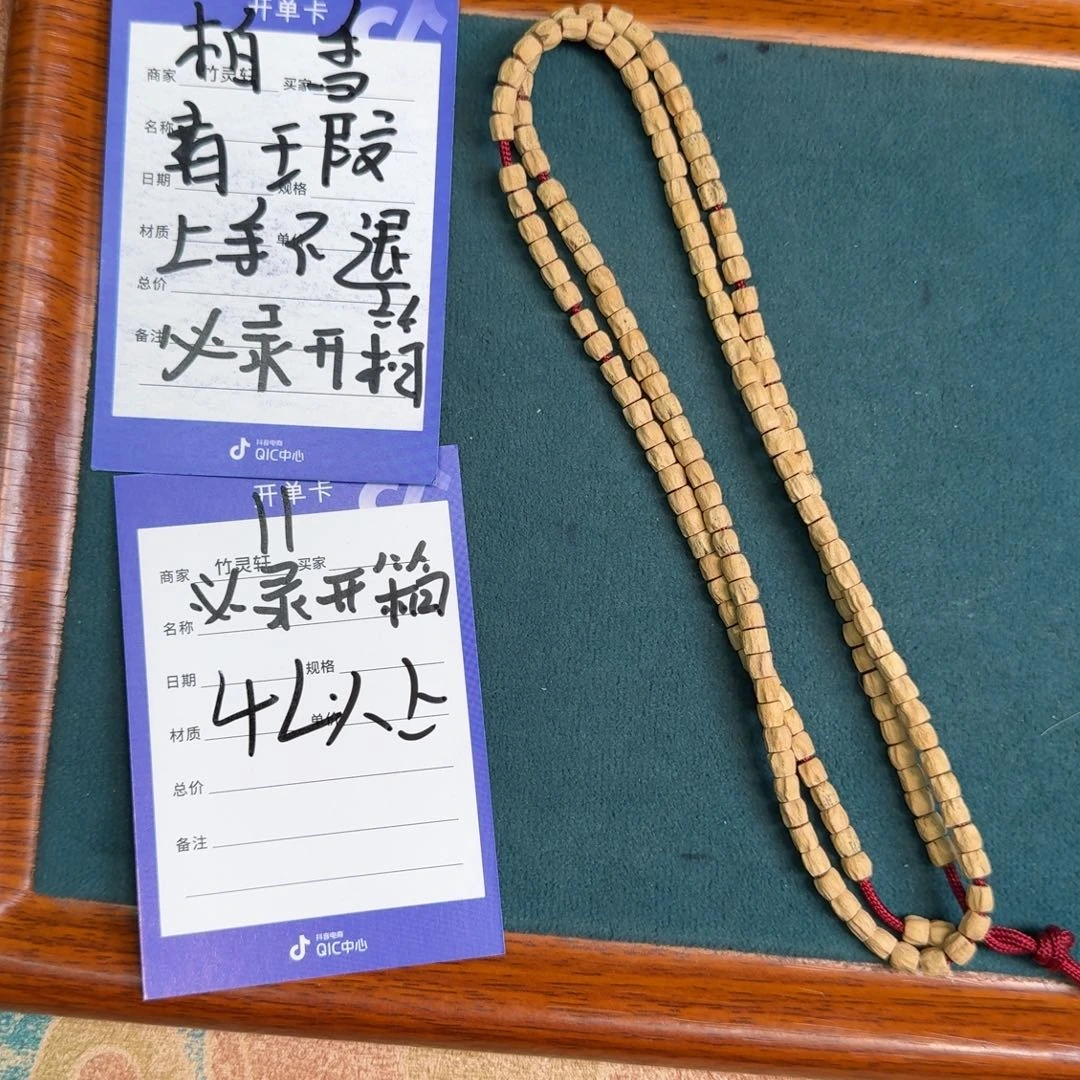 开单卡
柏 袁
商家 竹灵轩 买家
名称
有干段
日期 规格
上手不退
材质 单价
总价
必录开箱
备注
抖音电商
QIC中心
开单卡
11
商家 竹灵轩 买家
必录开箱
名称
日期 规格
4L以上
材质 单价
总价
备注
抖音电商
QIC中心